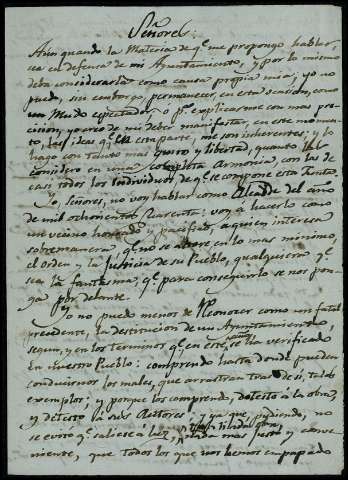 Señores:
Aún quando la Materia de q.e me propongo hablar,
sea en defensa de mi Ayuntamiento, y por lo mismo
deba considerarla como causa propia mia; yo no
puedo, sin embargo, permanecer en esta ocasion, como
un Mudo espectador, o p.a explicarme con mas pre-
cision, yo creo de mi deber manifestar, en este momen-
to, las ideas q.e en esta parte, me son inherentes; y lo
hago con tanto mas gusto y libertad, quanto las
considero en una completa Armonia, con las de
casi todos los Individuos de q.e se compone esta Junta.
Yo, Señores, no voy hablar como Alcalde del año
de mil ochocientos Quarenta: voy a hacerlo como
un vecino honrado y pacifico, a quien interesa
sobremanera, q.e no se altere en lo mas minimo,
el Orden y la Justicia de su Pueblo, qualquiera q.e
sea la fantasma, q.e para conseguirlo se nos pon-
ga por delante.
Yo no puedo menos de Reconocer como un fatal
precidente, la destitucion de un Ayuntamiento,
segun, y en los terminos q.e en este año se ha verificado
en nuestro Pueblo: comprendo hasta donde pueden
conducirnos los males, que arrastran tras de si, tales
exemplos; y porque los comprendo, detesto a la obra,
y detesto a sus Actores: y ya que, pudiendo, no
se evitó q.e saliese a luz, mas justo y conve-
niente, que todos los que nos hemos empapado